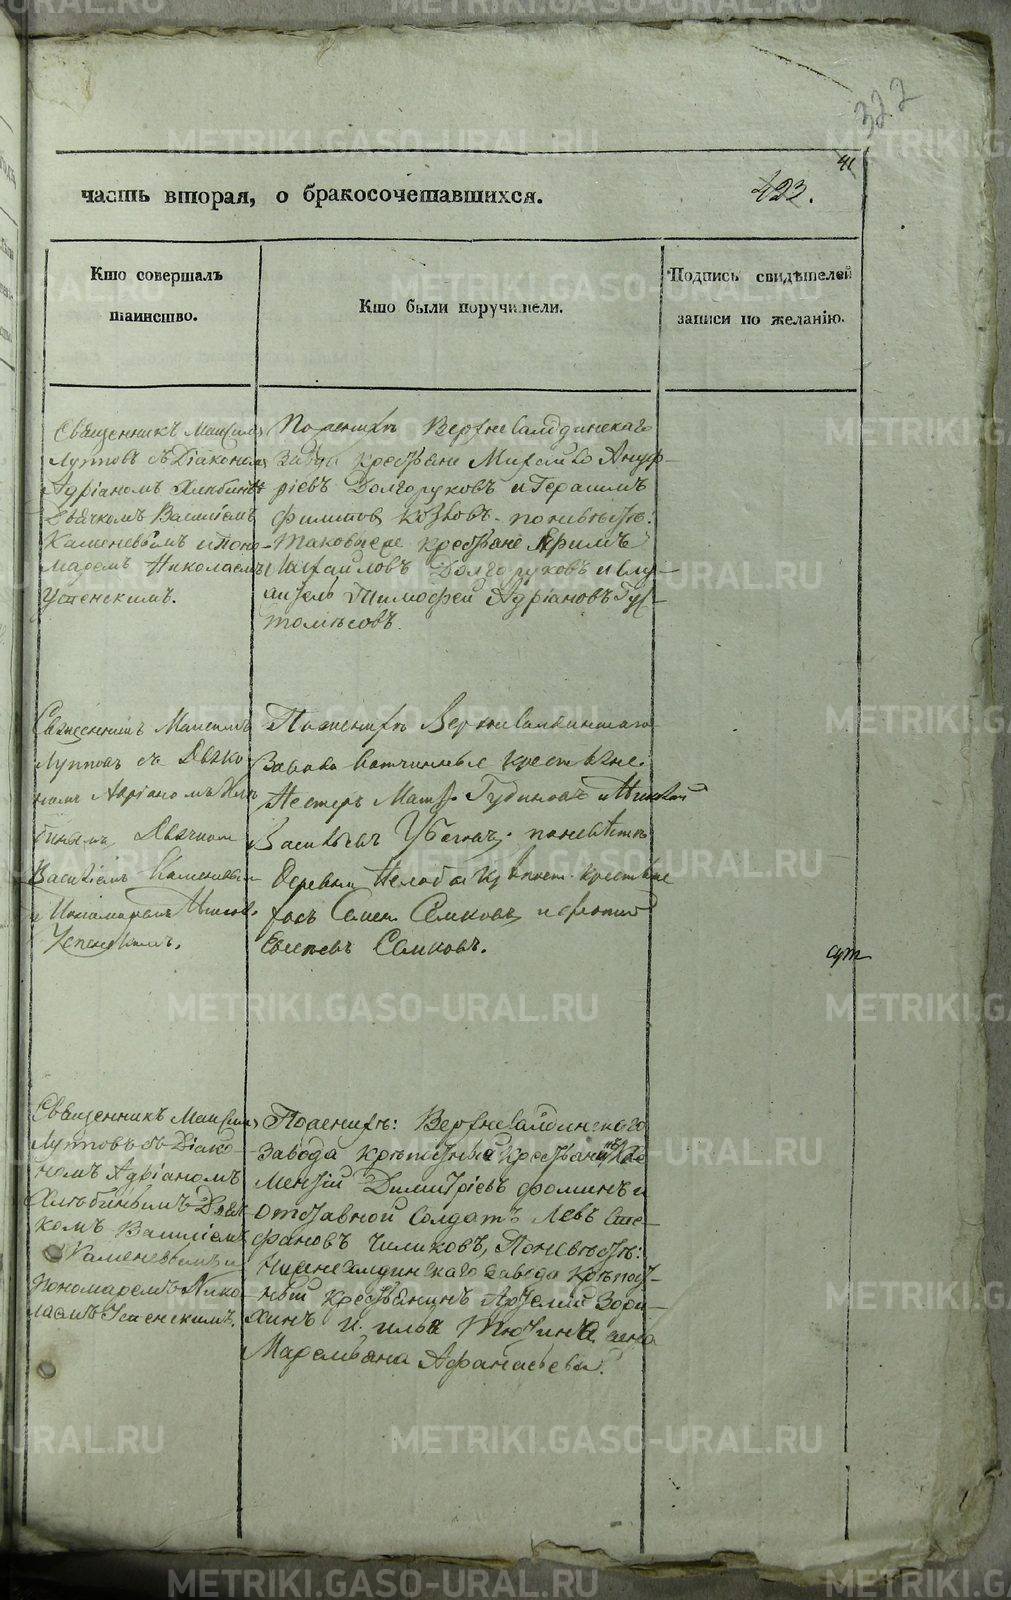 322
41
423.
часть вторая, о бракосочетавшихся.
Кто совершалъ
таинство.
Кто были поручители.
Подпись свидѣтелей
записи по желанію.
Священникъ Максимъ
Лупповъ съ Діакономъ
Адріаномъ Хлѣбинымъ
Дьячкомъ Василіемъ
Каменевымъ и поно-
маремъ Николаемъ
Успенскимъ.
По женихѣ Верхнесалдинскаго
завода крестьяне Михайло Ануф-
ріевъ Долгоруковъ и Герасимъ
Филиповъ по невѣстѣ:
таковыеже крестьяне
Михайловъ Долгоруковъ и слу-
житель Тимофей Адріановъ Гус-
томѣсовъ.
Священникъ Максимъ
Лупповъ съ Діако-
номъ Адріаномъ Хлѣ-
бинымъ, Дьячкомъ
Василіемъ Каменевым
и Пономаремъ Никол.
Успенскимъ.
По женихѣ Верхнесалдинскаго
Завода вотчинные крестьяне:
Нестеръ Матф. Гудиновъ и
Васильевъ по невѣстѣ
Деревни Нелобы крѣпост. крестьяне
Семен. Семковъ, и
Евсеевъ Семковъ.
сут
Священникъ Максимъ
Лупповъ съ Діако-
номъ Адріаномъ
Хлѣбинымъ Дьяч-
комъ Василіемъ
Каменевымъ и
пономаремъ Нико-
лаемъ Успенскимъ.
По женихѣ: Верхнесалдинскаго
завода крѣпостные крестьяне Кле-
ментій Димитріевъ Фоминъ и
отставной солдатъ Левъ Сте-
фановъ Чиликовъ, По невѣстѣ:
Нижнесалдинскаго завода крѣпост-
ный крестьянинъ Артемій Зори-
хинъ и Илья Тютина жена
Маремьяна Афанасьева.
METRIKI.GASO-URAL.RU